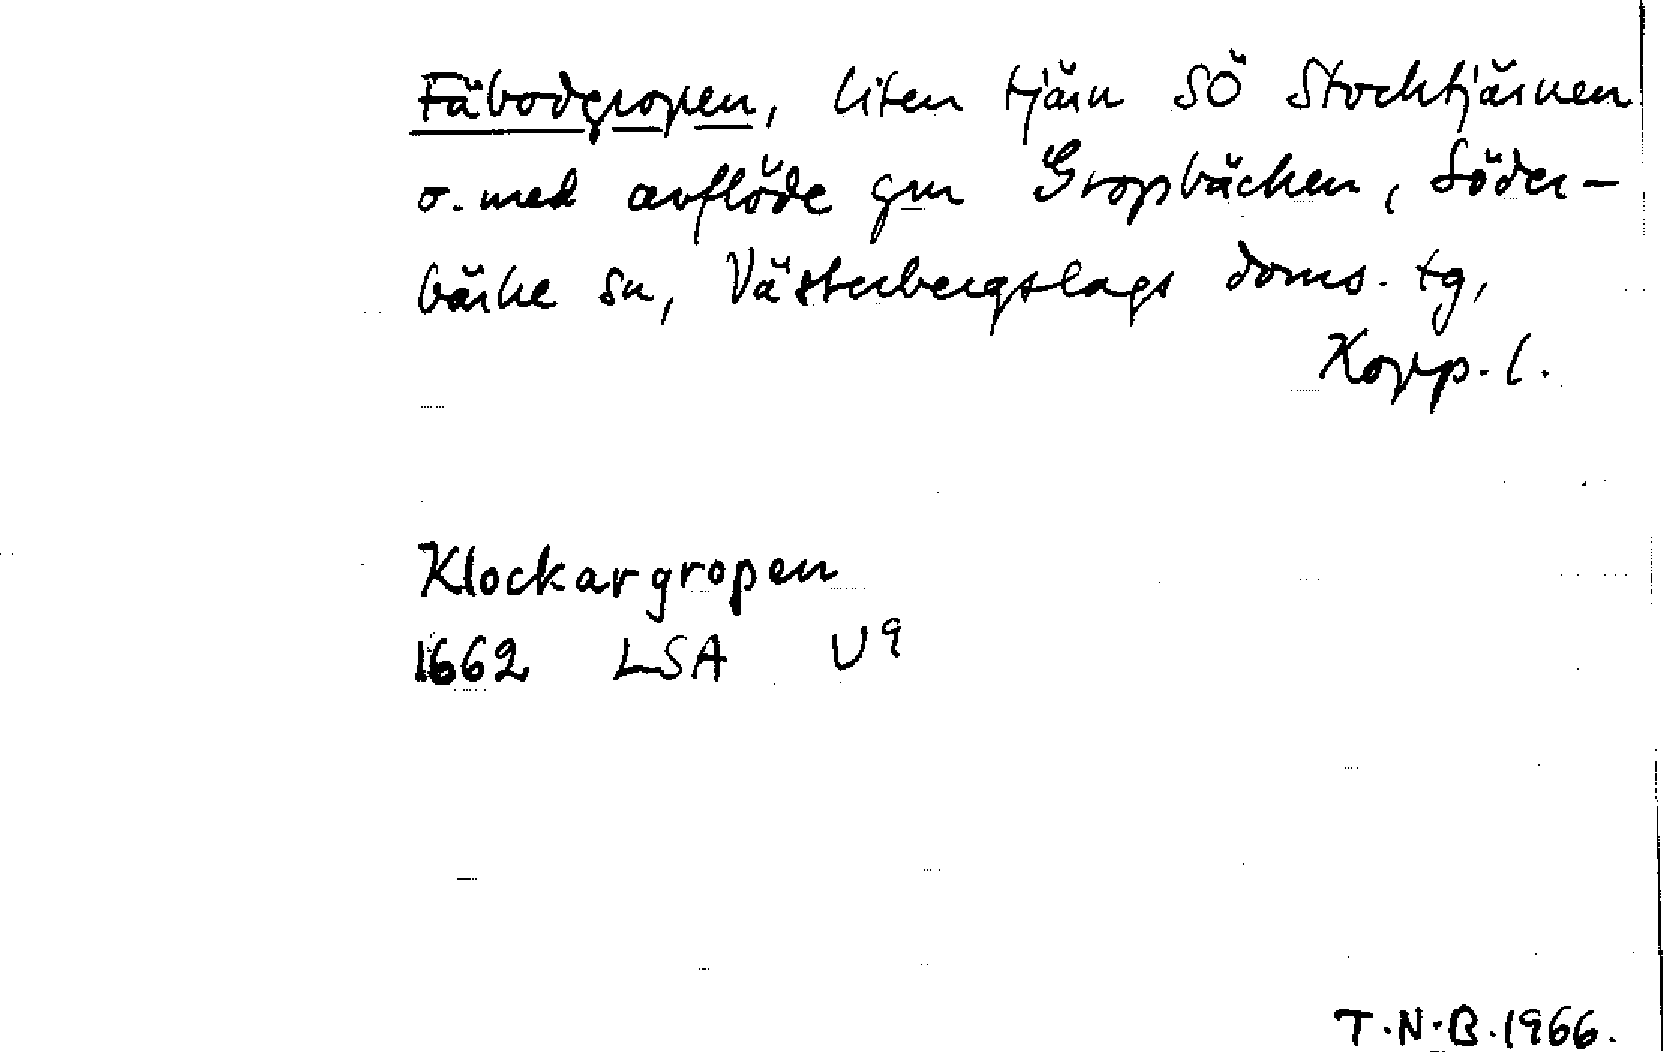 Fäbodgropen, liten tjärn SÖ Stocktjärnen
o. med avflöde gm Gropbäcken, Söder-
bärke sn, Västerbergslags doms. tg,
Kopp. l.
Klockargropen
1662 LSA U9
T.N.B. 1966.